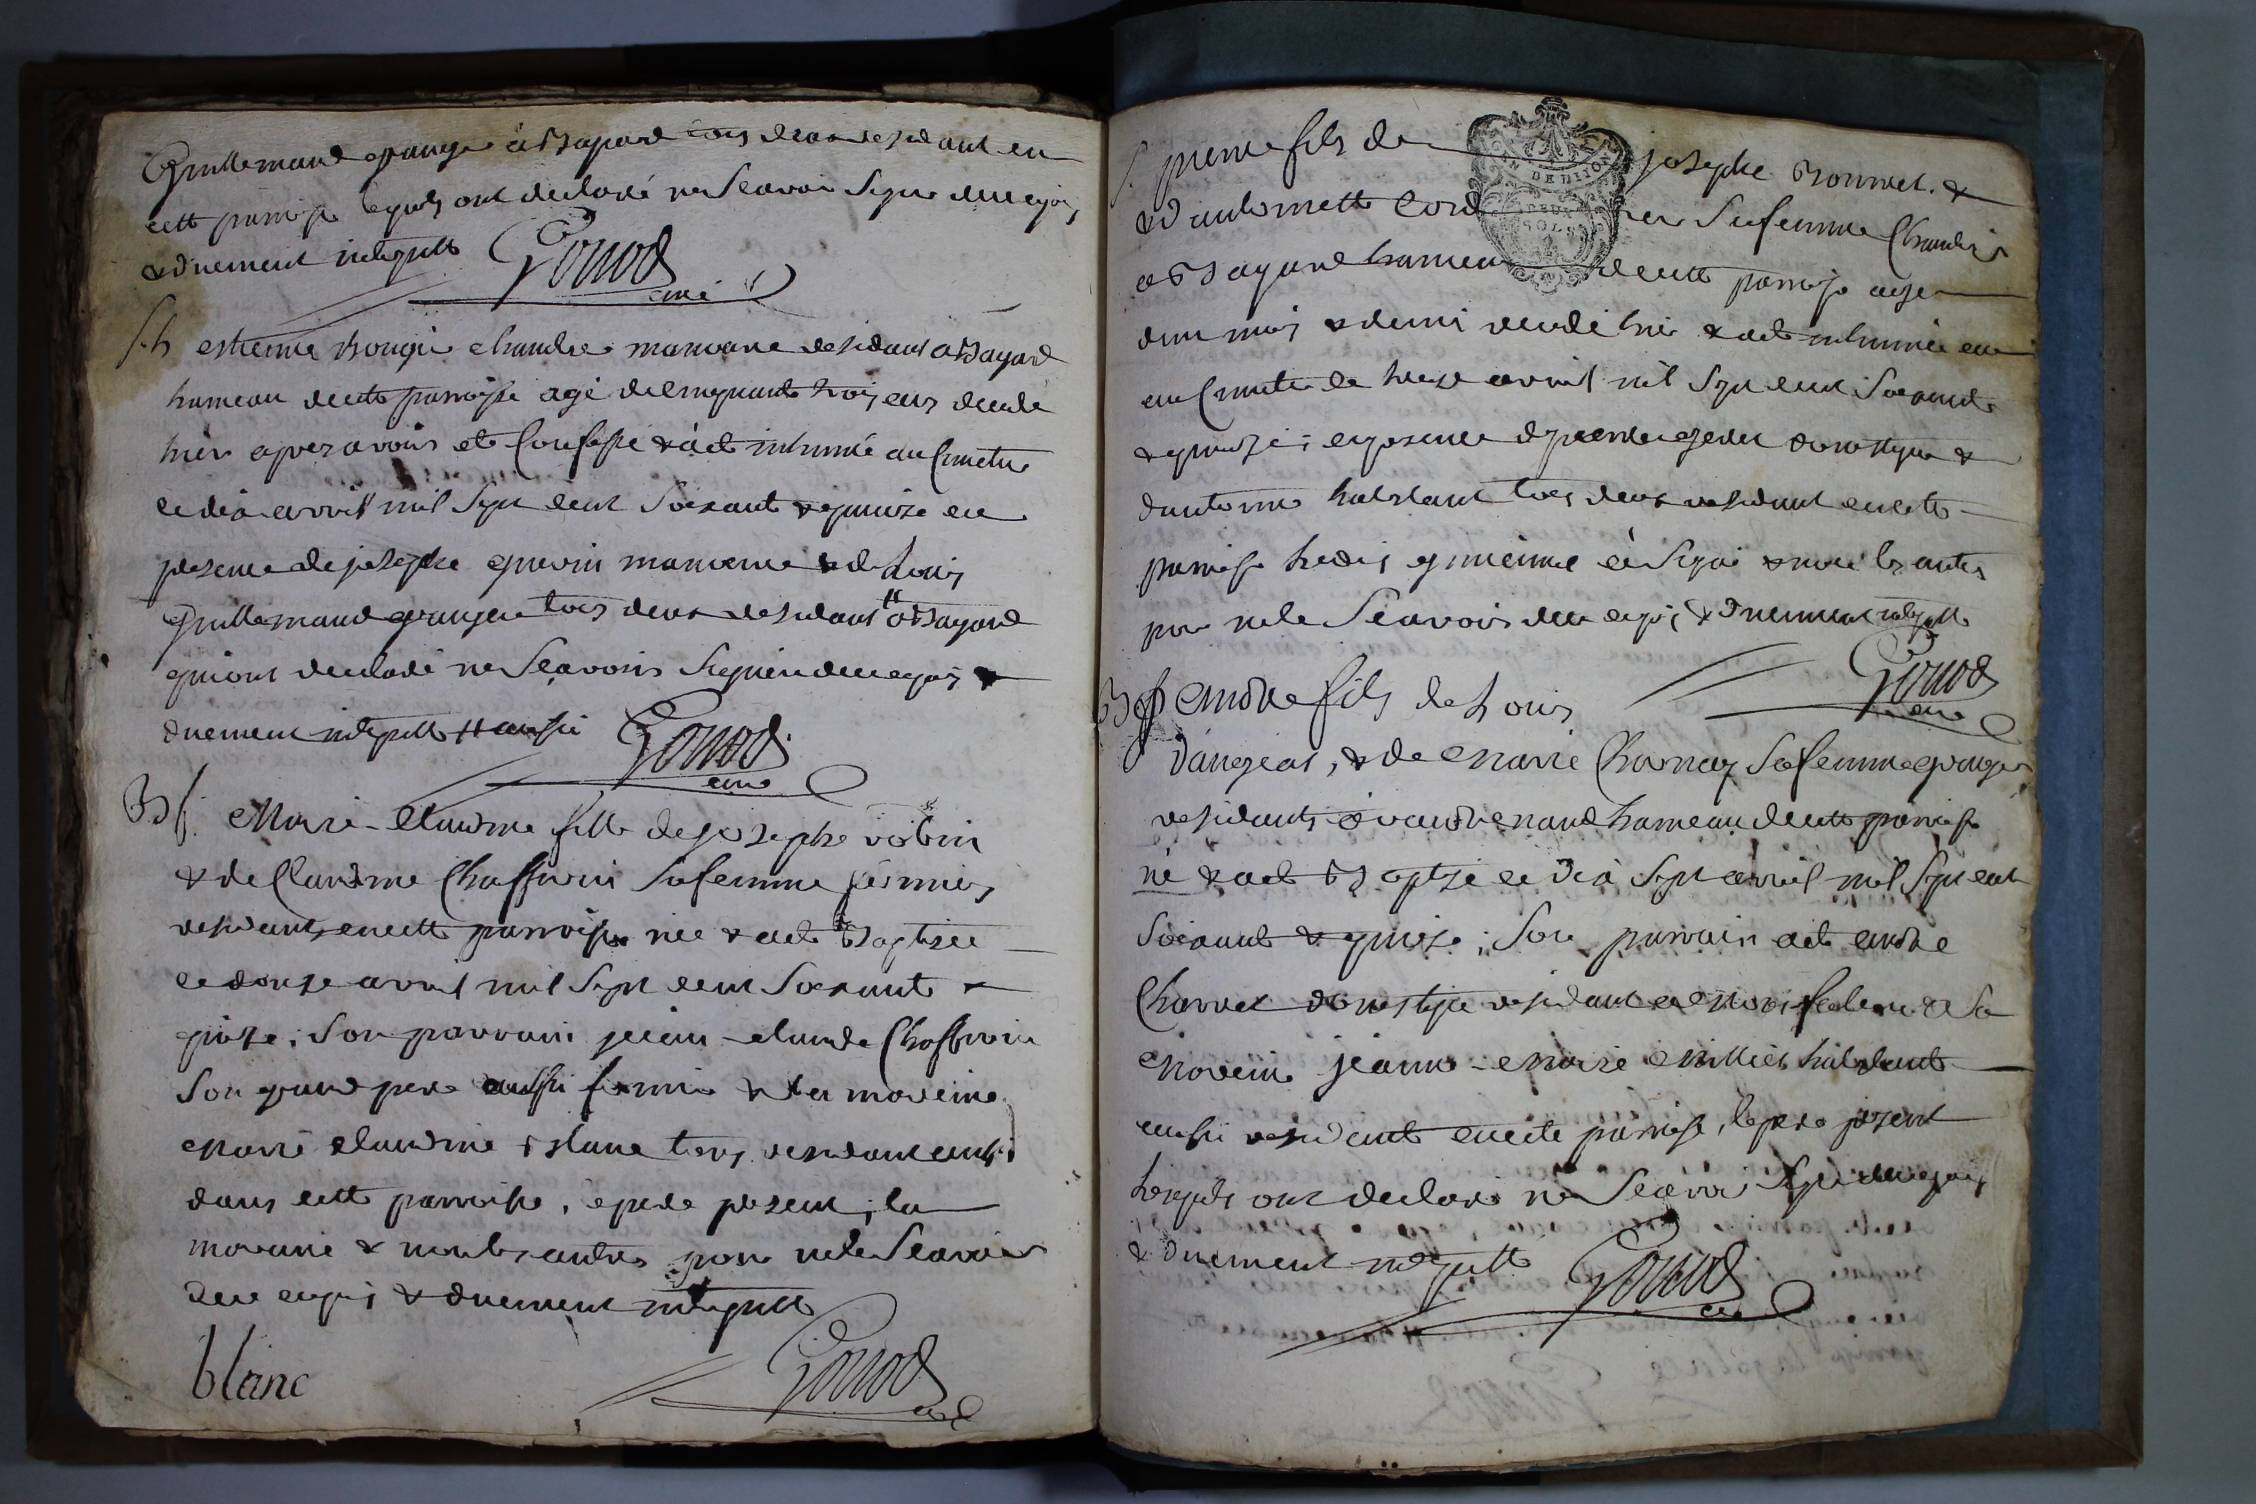 Guillemaud granger à Bayard tous deux residant en
cette paroisse lequels ont declaré ne scavoir signer de ce enquis
& duement interpellé Gonod
curé
S. h estienne Rongier chandre manoeuvre residant à Bayard
hameau de cette paroisse agé de cinquante trois ans decedé
hier apres avoir eté confessé & a eté inhumé au cimetie
ce dix avril mil sept cent soixante & quinze en
presence de josephe guerin manoeuvre & de Louis
Guillemaud granger tous deux residant # à Bayard
qui ont declaré ne scavoir signer de ce enquis &
duement interpellé # aussi Gonod
curé
B f. Marie-claudine fille de josephe robin
& de Claudine Chaffurin sa femme fermiers
residants en cette paroisse née & a eté Baptisée
ce douze avril mil sept cent soixante &
quinze ; son parrain jean-claude Chaffurin
son grand pere aussi fermier & la mareine
Marie claudine tous residant aussi
dans cette paroisse, le pere present ; la
mareine & non les autres pour ne le scavoir
de ce enquis & duement interpellé
blanc Gonod
curé
S. pierre fils de josephe Bonnet &
& d'antoinette sa femme
a Bayard hameau de cette paroisse agé
d'un mois & demi decedé hier & a eté inhumée
au cimetie ce treize avril mil sept cent soixante
& quinze ; en presence de domestique &
d'antoine habitant tous deux residant en cette
paroisse signé & non les autres
pour ne le scavoir de ce enquis & duement interpellé
Gonod
curé
B f andre fils de Louis
dangeas, & de Marie Charnay sa femme granger
residants à hameau de cette paroisse
né & a eté Baptisé ce dix sept avril mil sept cent
soixante & quinze ; son parrain a eté andre
Charvet domestique residant & sa
mareine jeanne-marie habitante
aussi residente en cette paroisse, le pere present
lesquels ont declaré ne scavoir signer de ce enquis
& duement interpellé Gonod
curé